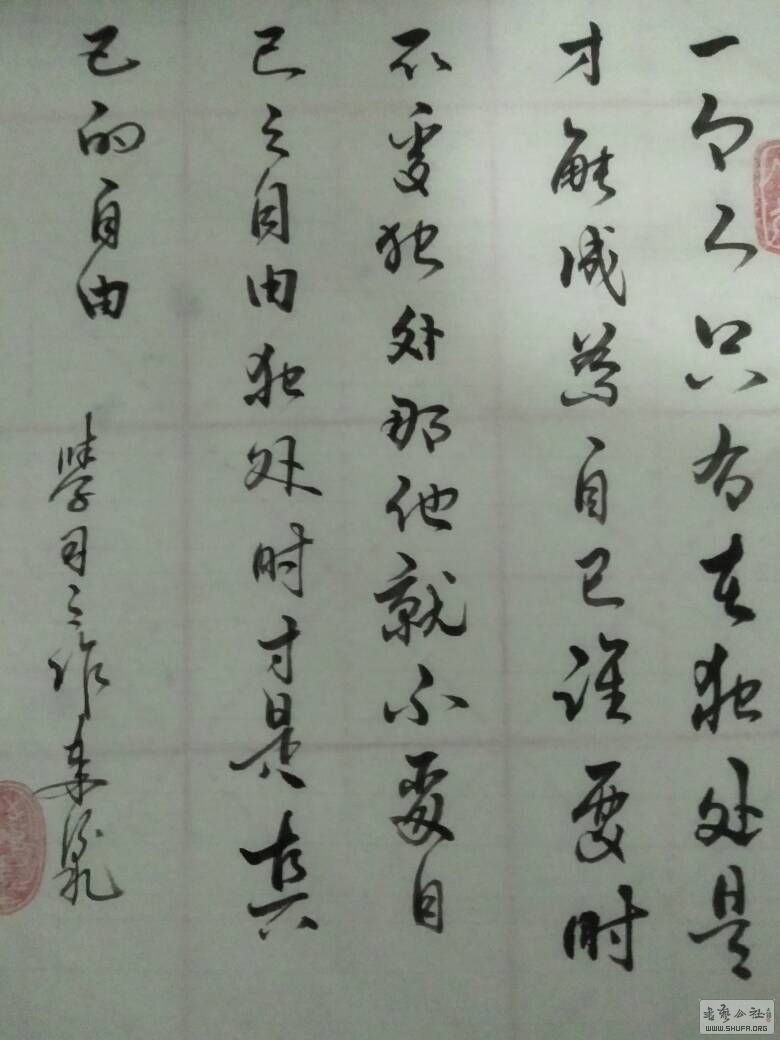 一个人只有在独处是
才能成為自己谁要时
不爱独处那他就不爱自
己之自由独处时才是真
己的自由
學习之作
书艺公社
WWW.SHUFA.ORG